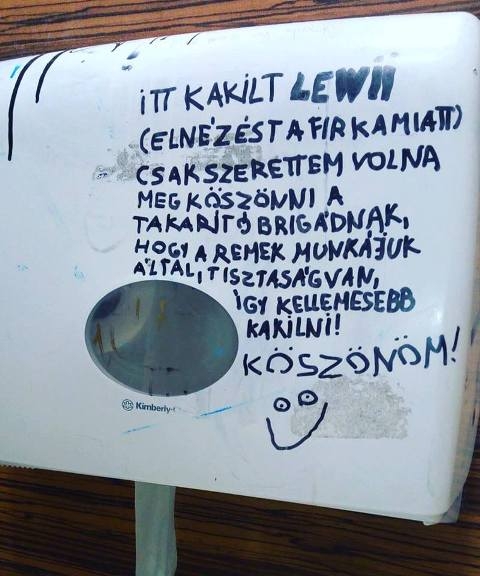 iTT KAKILT LEWII
(ELNÉZÉST A FIRKA MIATT)
CSAK SZERETTEM VOLNA
MEGKÖSZÖNNI A
TAKARÍTÓ BRIGÁDNAK,
HOGY A REMEK MUNKÁJUK
ÁLTAL, TISZTASÁG VAN,
ÍGY KELLEMESEBB
KAKILNI!
KÖSZÖNÖM!
Kimberly-